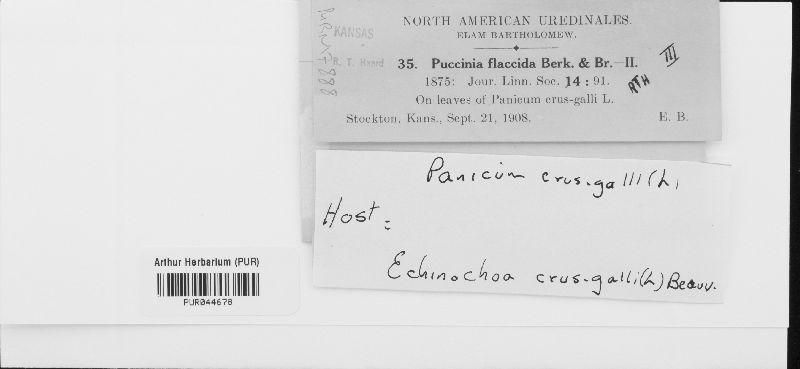 KANSAS
NORTH AMERICAN UREDINALES.
ELAM BARTHOLOMEW.
35. Puccinia flaccida Berk. & Br.—II. III
1875: Jour. Linn. Soc. 14 : 91.
On leaves of Panicum crus-galli L.
Stockton, Kans., Sept. 21, 1908. E. B.
Panicum crus-galli (L)
Host:
Echinochoa crus-galli (L) Beauv.
Arthur Herbarium (PUR)
PUR044678